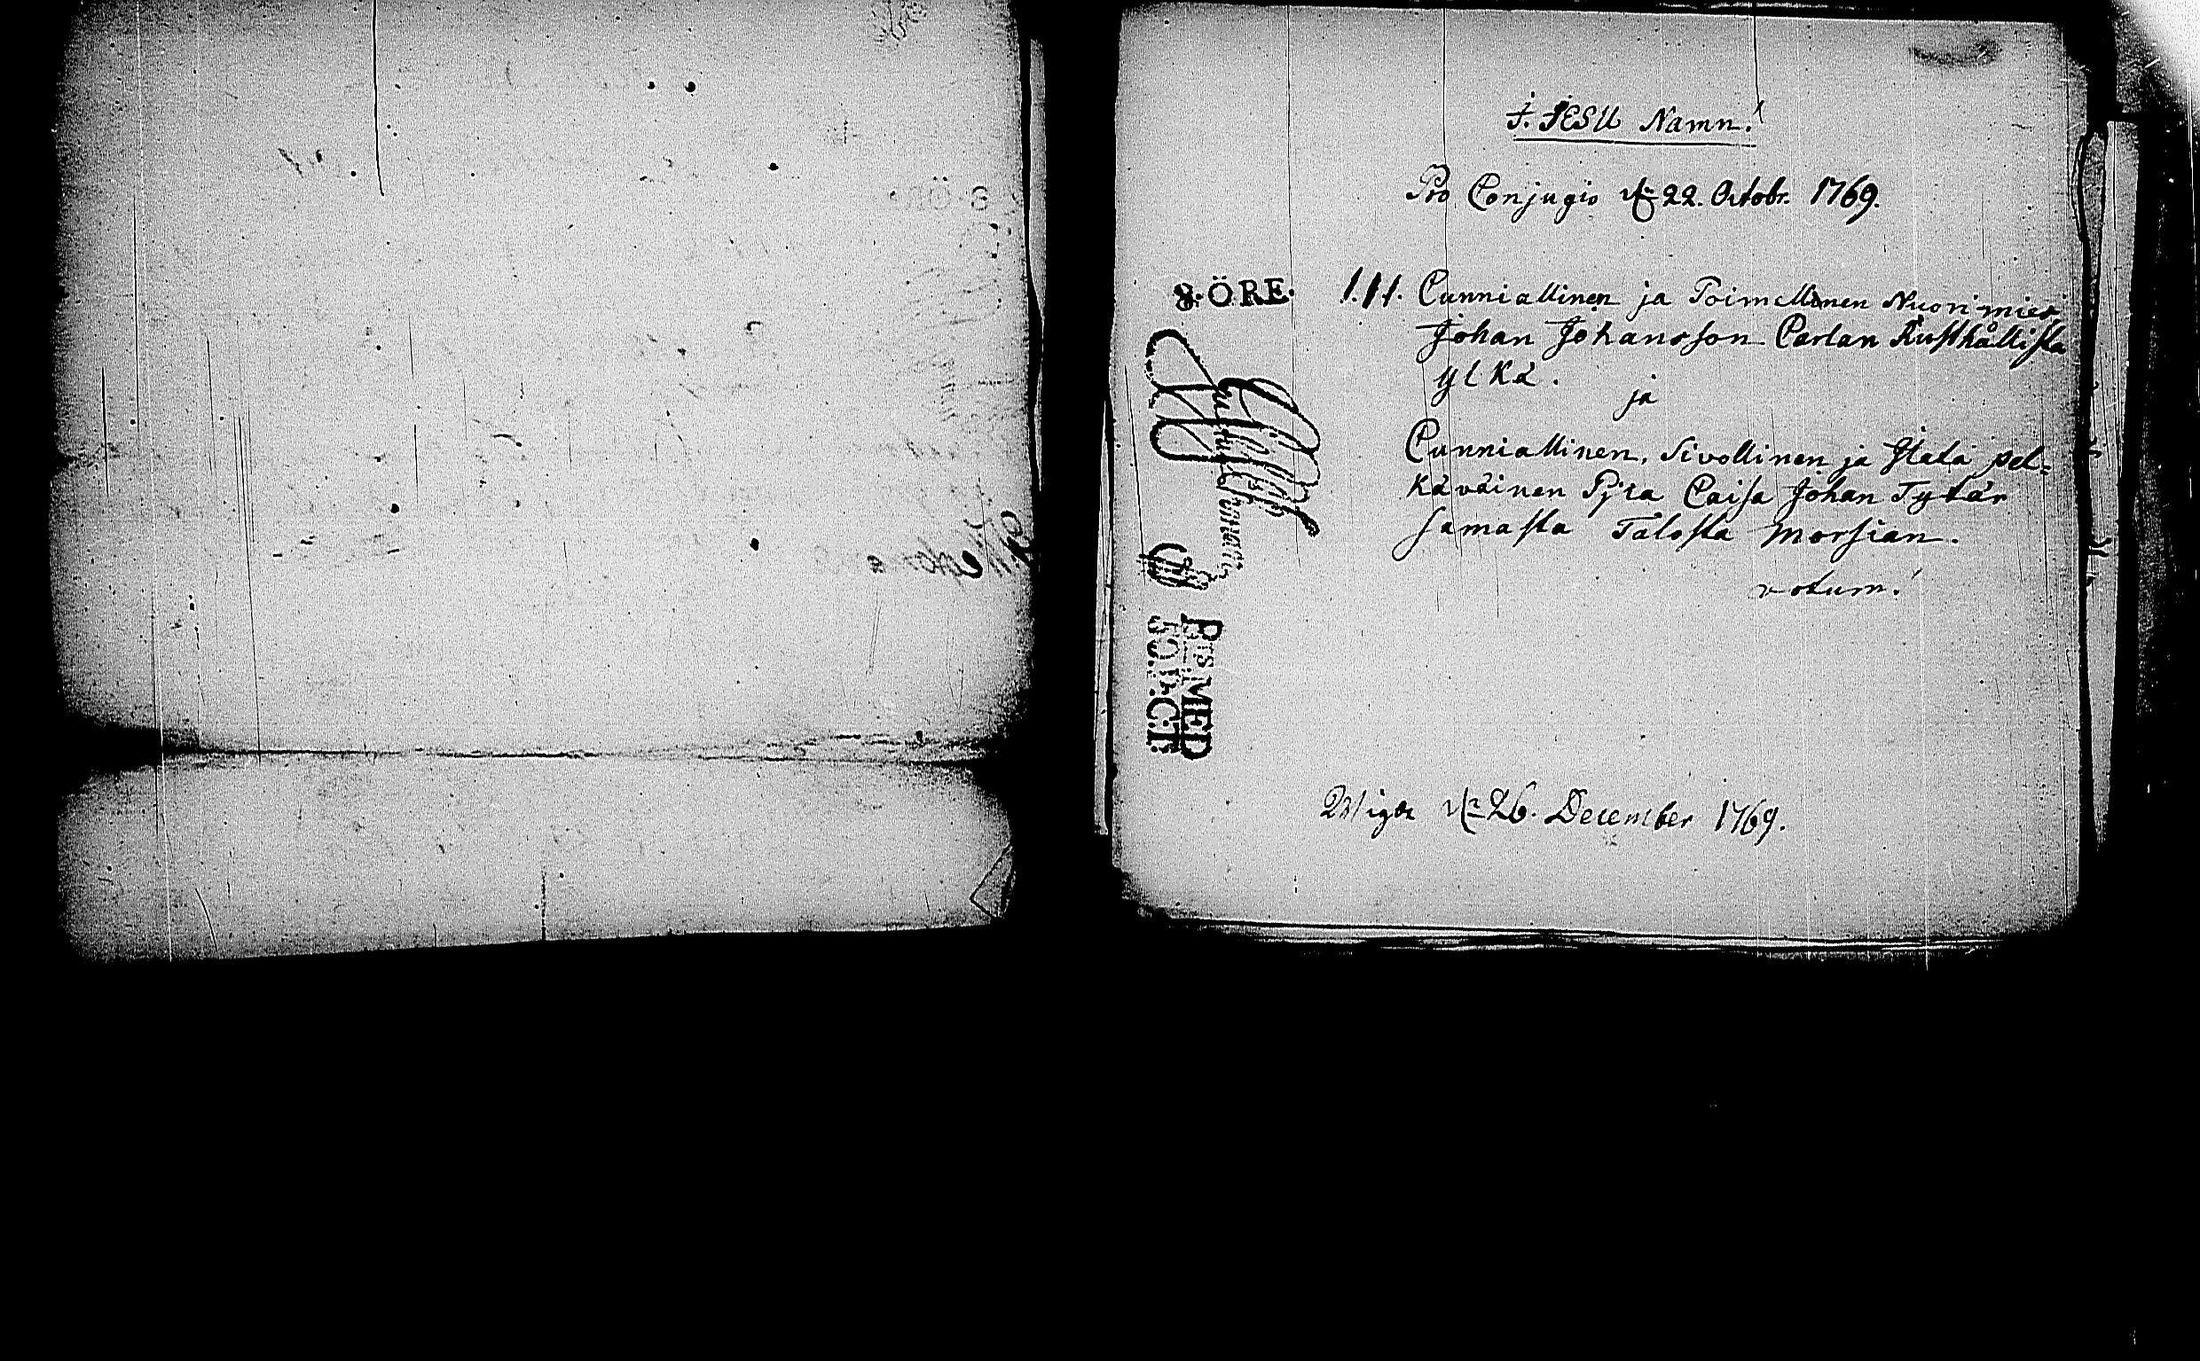 J. JESU Namn!
Pro Conjugio d. 22. Octobr. 1769.
8. ÖRE.
1.11. Cunniallinen ja Toimellinen Nuorimies
Johan Johansson Carlan Rusthållista
ylkä.
ja
Cunniallinen, Sivollinen ja Itala pel=
käväinen Pijca Caisa Johan Tytär
samasta Talosta Morsian.
votum!
PTS MED
50. Pr:CT.
Wigde d. 26. December 1769.